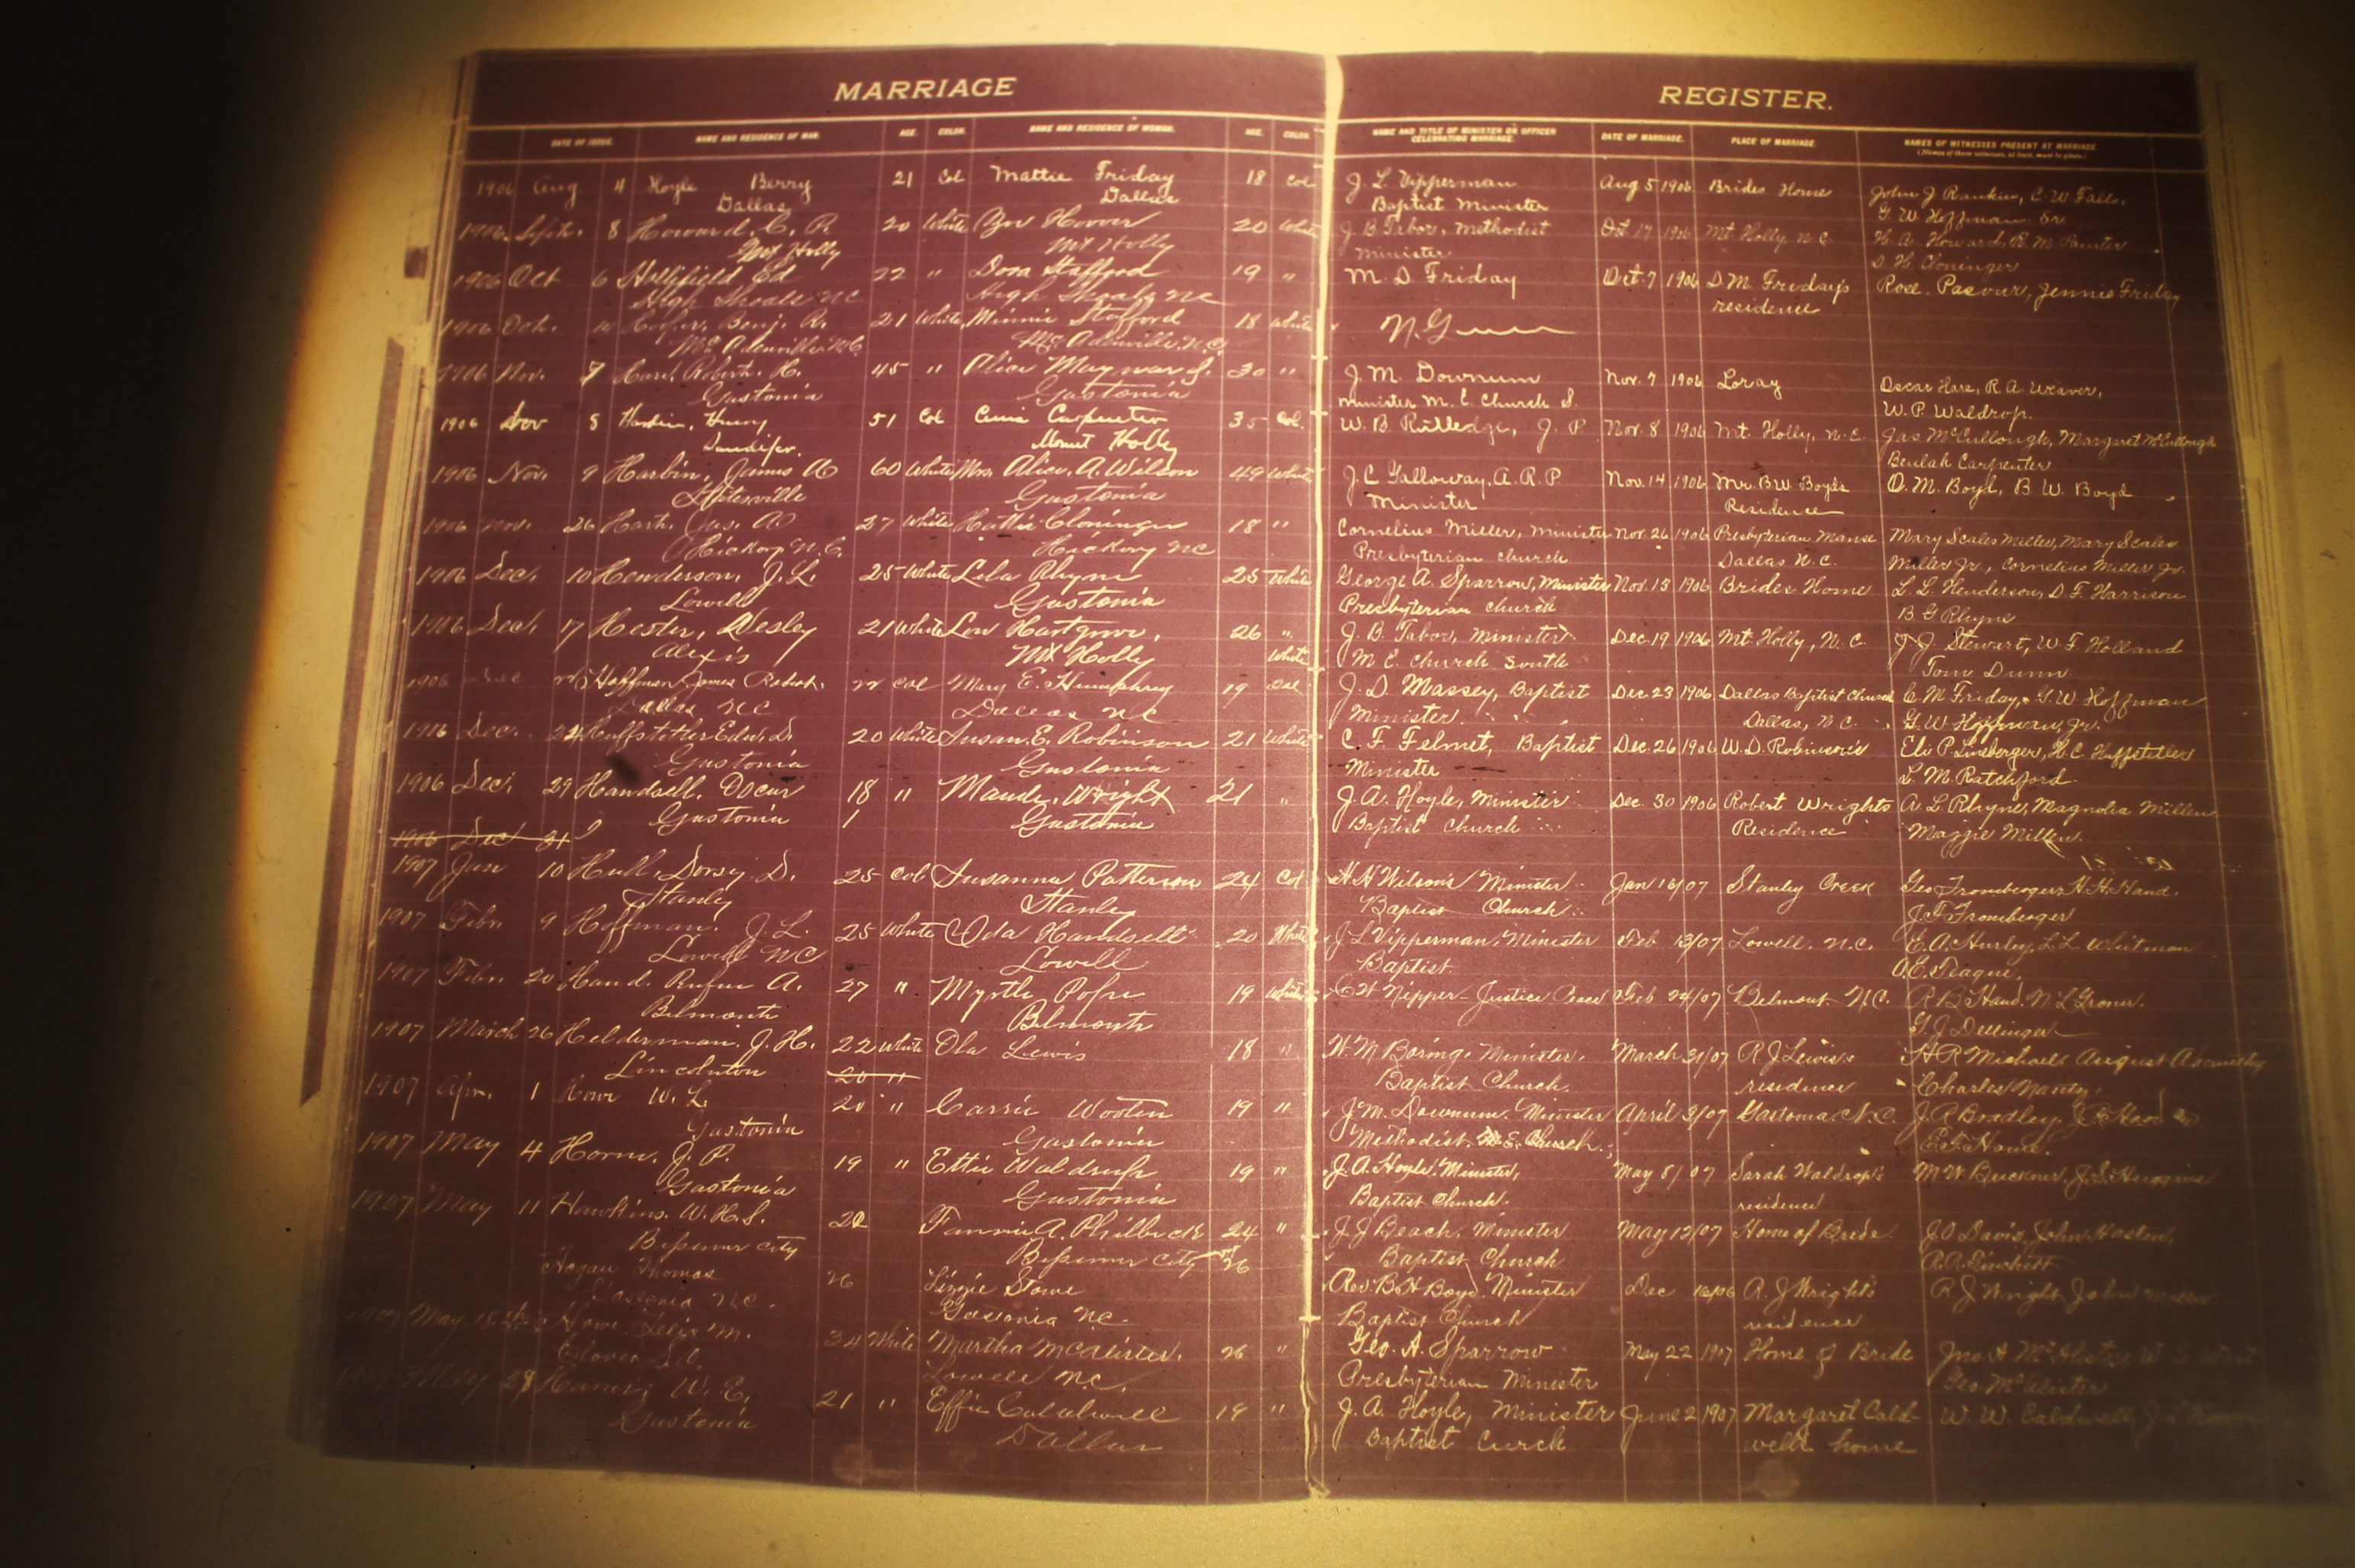 MARRIAGE
DATE OF ISSUE. NAME AND RESIDENCE OF MAN. AGE. COLOR. NAME AND RESIDENCE OF WOMAN. AGE. COLOR.
1906 Aug 4 Hoyle Berry 21 Col Mattie Friday 18 Col
Dallas Dallas
1906 Sept. 8 Howard, C. P. 20 White Hoover 20 White
Mt Holly Mt Holly
1906 Oct 6 Hollifield Ed 22 " Dora Stafford 19 "
High Shoals NC High Shoals NC
1906 Oct. Benj. R. 21 White Minnie Stafford 18 White
McAdenville N.C. McAdenville, N.C.
1906 Nov. 7 Robert. H. 45 " Alice 30 "
Gastonia Gastonia
1906 Nov 8 Henry 51 Col Carpenter 35 Col.
Mount Holly
1906 Nov. 9 Harbin, James A 60 White Mrs. Alice. A. Wilson 49 White
Statesville Gastonia
1906 Nov. 26 Hart. Jas. A 27 White Hattie Cloninger 18 "
Hickory N.C. Hickory NC
1906 Dec. 10 Henderson, J. L. 25 White Lela Rhyne 25 White
Lowell Gastonia
1906 Dec. 17 Hester, Wesley 21 White Lou Hartgrove, 26 "
Alexis Mt Holly White
1906 Dec Hoffman James Robert. 22 Col Mary E. Humphrey 19 Col
Dallas NC Dallas NC
1906 Dec. 24 Huffstetler Edw. D. 20 White Susan. E. Robinson 21 White
Gastonia Gastonia
1906 Dec. 29 Handsell. Oscar 18 " Maude. Wright 21 "
Gastonia Gastonia
1906 Dec 31
1907 Jan 10 Hull, Dorsey. D. 25 Col Susanna Patterson 24 Col
Stanley Stanley
1907 Febr. 9 Hoffman. J. L. 25 White Oda Handsell 20 White
Lowell NC Lowell
1907 Febr. 20 Hand. Rufus A. 27 " Myrtle Pope 19 White
Belmont Belmont
1907 March 26 Helderman. J. H. 22 White Ola Lewis 18 "
Lincolnton 20 "
1907 Apr. 1 Howe W. L. 20 " Carrie Wooten 19 "
Gastonia Gastonia
1907 May 4 Horn. J. P. 19 " Ettie Waldrup 19 "
Gastonia Gastonia
1907 May 11 Hawkins. W. H. S. 22 Fannie A. Philbeck 24 "
Bessemer City Bessemer City 26
Hogan Thomas 26 Lizzie Stowe
Gastonia N.C. Gastonia N.C.
1907 May 18 Howe. M. 34 White Martha McAlister. 26 "
Clover S.C. Lowell N.C.
1907 May 28 W. E. 21 " Effie Caldwell 19 "
Gastonia Dallas
REGISTER.
NAME AND TITLE OF MINISTER OR OFFICER CELEBRATING MARRIAGE. DATE OF MARRIAGE. PLACE OF MARRIAGE. NAMES OF WITNESSES PRESENT AT MARRIAGE.
(Names of three witnesses, at least, must be given.)
J. L. Vipperman Aug 5 1906 Brides Home John J Rankin, C. W Falls,
Baptist Minister G. W. Hoffman Sr
J. B Tabor, Methodist Oct 17 1906 Mt Holly N.C. H. A. Howard, R. M. Painter
Minister D. H. Cloninger
M. D Friday Oct. 7 1906 D. M Friday's Rose. Pasour, Jennie Friday
residence
N. G
J. M. Downum Nov. 7 1906 Loray Oscar Hare, R. A. Weaver,
Minister M. E. Church S. W. P. Waldrop.
W. B Rutledge, J. P Nov. 8 1906 Mt. Holly, N.C. Jas McCullough, Margaret McCullough
Beulah Carpenter
J. C Galloway, A. R. P Nov. 14 1906 Mr. B W Boyds O. M. Boyd, B. W. Boyd
Minister Residence
Cornelius Miller, Minister Nov. 26 1906 Presbyterian Manse Mary Scales Miller, Mary Scales
Presbyterian church Dallas N.C. Miller Jr., Cornelius Miller Jr.
George A. Sparrow, Minister Nov. 15 1906 Brides Home L. L. Henderson, D. F. Harrison
Presbyterian church B. G Rhyne
J. B. Tabor, Minister Dec. 19 1906 Mt. Holly, N.C. J. J. Stewart, W. F. Holland
M. E. Church South Tom Dunn
J. D. Massey, Baptist Dec. 23 1906 Dallas Baptist Church C. M Friday, G. W Hoffman
Minister. Dallas, N.C. G. W Hoffman, Jr.
C. F. Felmet, Baptist Dec. 26 1906 W. D. Robinson's Eli P. Lineberger, H. C. Huffstetler
Minister L. M. Ratchford
J. A. Hoyle, Minister Dec. 30 1906 Robert Wrights A. L. Rhyne, Magnolia Millen
Baptist Church Residence Maggie Millen.
H H Wilson's Minister Jan 16/07 Stanley Creek Geo Fronberger, H. H. Hand.
Baptist Church J. F Fronberger
J L Vipperman, Minister Feb 13/07 Lowell. N.C. E. A. Hurley, L. L. Whitman
Baptist A. E. Teague.
C W Nipper - Justice Peace Feb 24/07 Belmont N.C. R. B. Hand.
G. J. Dellinger
W. M Boring. Minister. March 31/07 R J Lewis's H R Michael August Abernethy
Baptist Church. residence Charles
J. M. Downum. Minister April 3/07 Gastonia. N.C. J. P. Bradley,
Methodist. M. E. Church.
J. A. Hoyle. Minister, May 8/07 Sarah Waldrop's M. W. Buckner, J. S. Huggins
Baptist Church. residence
J J Beach. Minister May 12/07 Home of Bride. J. O Davis, John Haston,
Baptist Church
Rev. B. H Boyd. Minister Dec 16/06 R. J Wright's R J Wright John
Baptist Church residence
Geo. A. Sparrow May 22 1907 Home of Bride
Presbyterian Minister Geo. McAlister
J. A. Hoyle, Minister June 2 1907 Margaret Cald- W. W. Caldwell,
Baptist Curch wells home